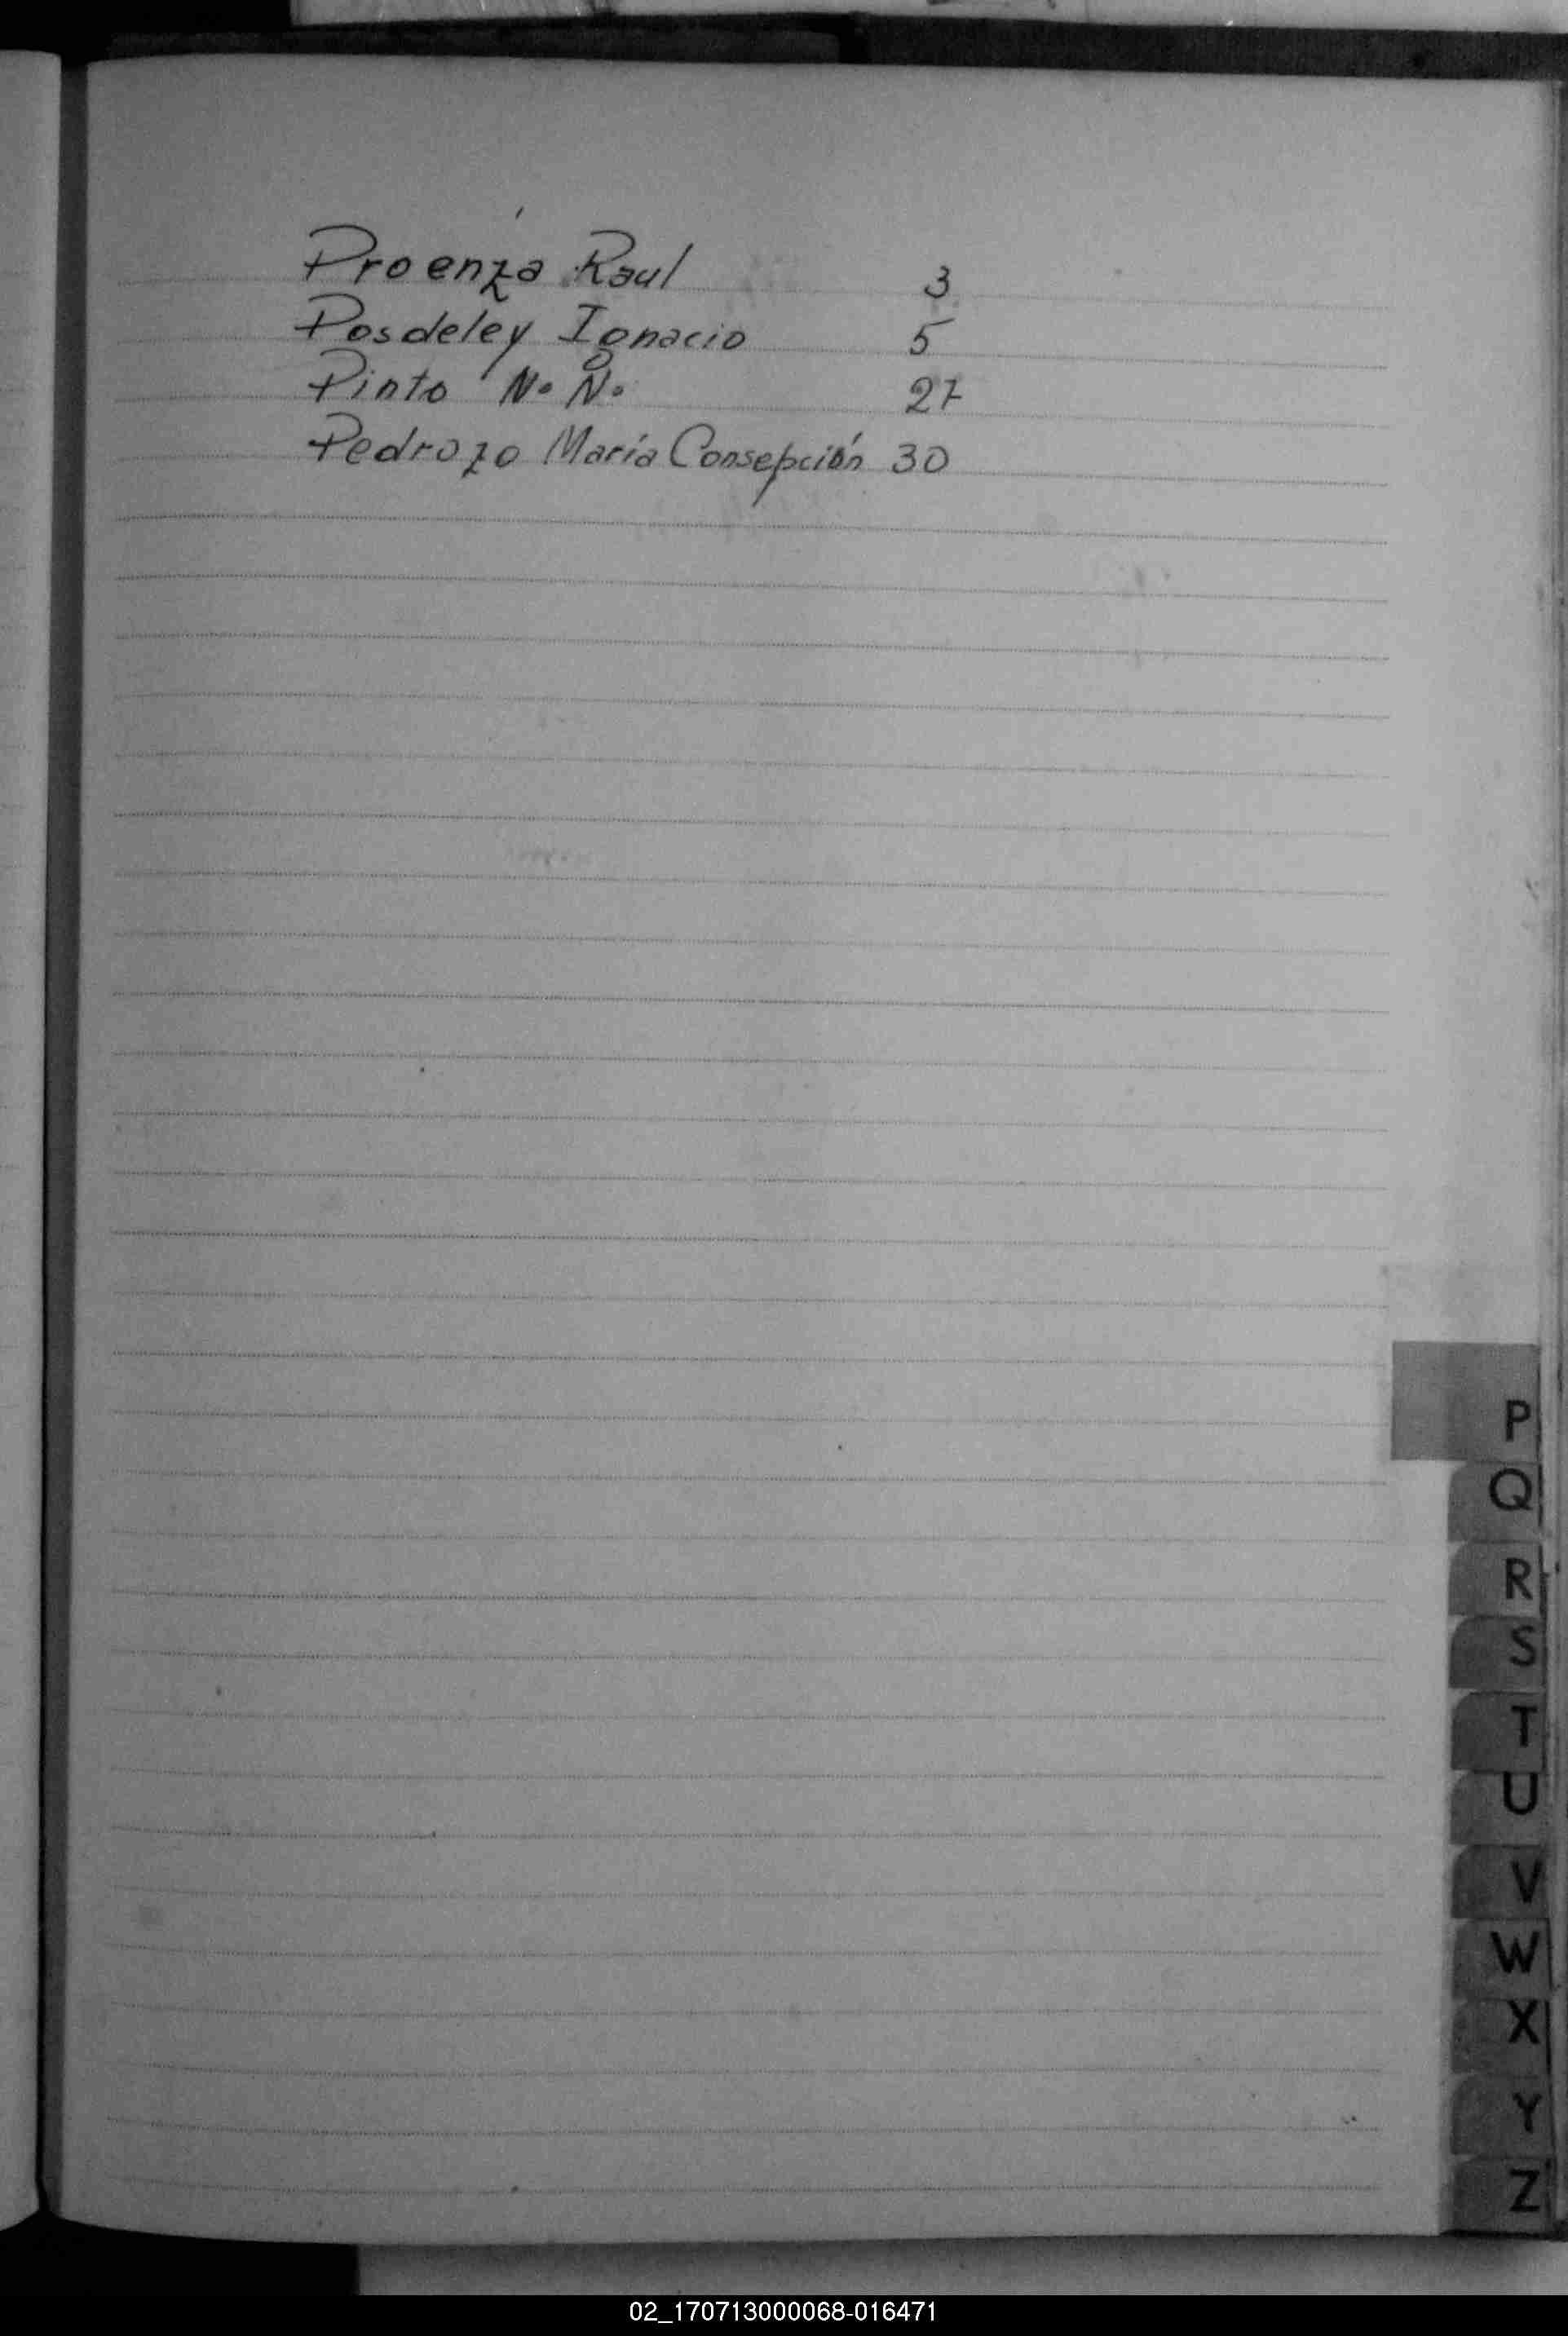 Proenza Raul 3
Posdeley Ignacio 5
Pinto N. N. 27
Pedrozo María Consepción 30
P
Q
R
S
T
U
V
W
X
Y
Z
02_170713000068-016471